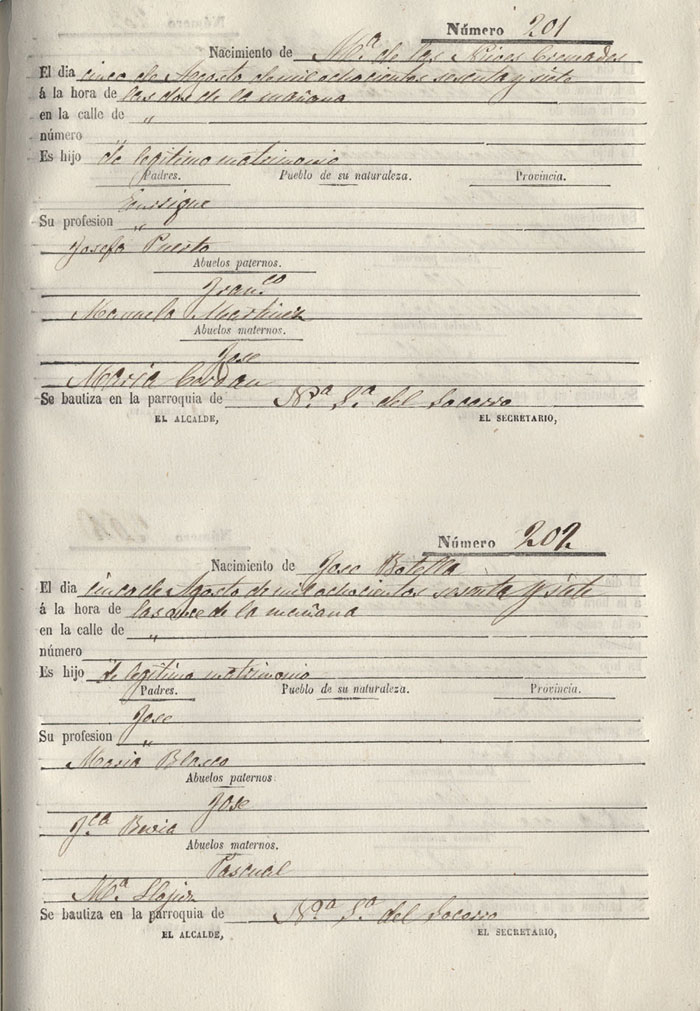 Número 201
Nacimiento de Mª de las Nieves Cremades
El dia cinco de Agosto de mil ochocientos sesenta y siete
á la hora de las dos de la mañana
en la calle de "
número "
Es hijo de legitimo matrimonio
Padres. Pueblo de su naturaleza. Provincia.
Enrique
Su profesion "
Josefa Puerto
Abuelos paternos.
Franco
Manuela Martinez
Abuelos maternos.
Jose
Maria
Se bautiza en la parroquia de Nª Sª del Socorro
EL ALCALDE, EL SECRETARIO,
Número 202
Nacimiento de Jose Botella
El dia cinco de Agosto de mil ochocientos sesenta y siete
á la hora de las once de la mañana
en la calle de "
número
Es hijo de legitimo matrimonio
Padres. Pueblo de su naturaleza. Provincia.
Jose
Su profesion "
Maria Blasco
Abuelos paternos
Jose
Fca Bevia
Abuelos maternos.
Pascual
Mª
Se bautiza en la parroquia de Nª Sª del Socorro
EL ALCALDE, EL SECRETARIO,